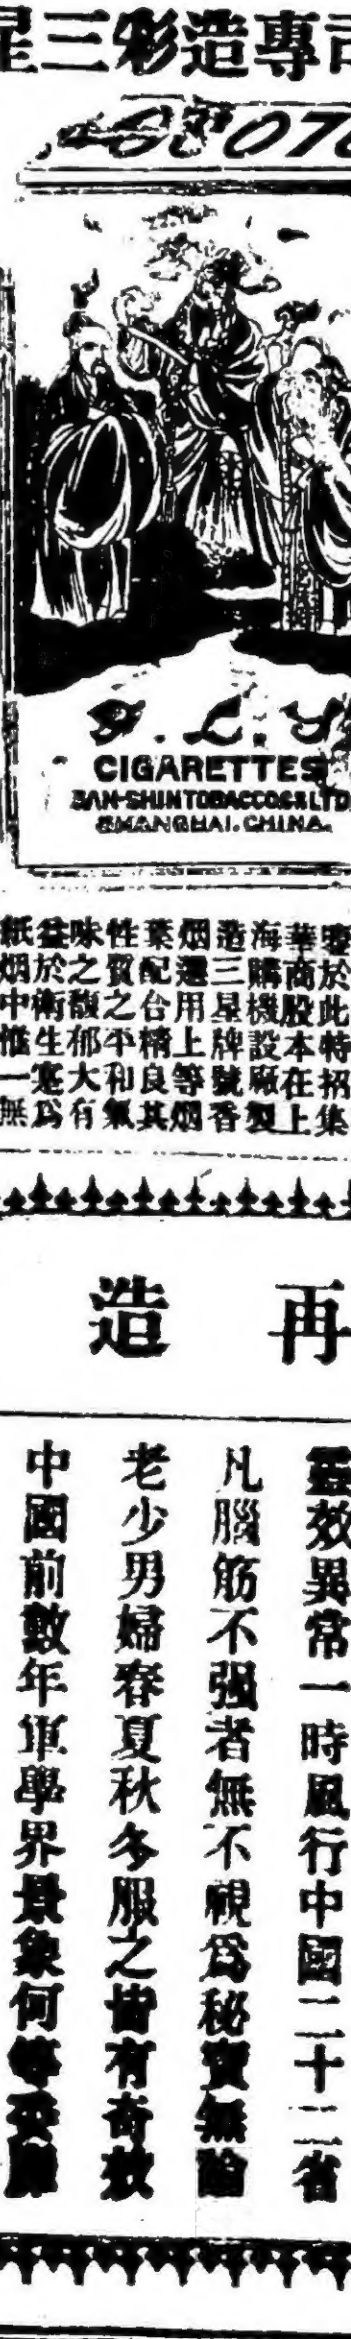 司專造彩三星
CIGARETTES
SAN-SHIN TOBACCO CO LTD
SHANGHAI. CHINA.
於此特招集
華商股本在上
海購機設廠製
造三星牌號香
烟選用上等烟
葉配合精良其
性質之平和氣
味之馥郁大有
益於衛生寔為
紙烟中惟一無
再造
靈效異常一時風行中國二十二省
凡腦筋不强者無不視爲秘寶無論
老少男婦春夏秋冬服之皆有奇效
中國前數年軍學界景象何等委靡